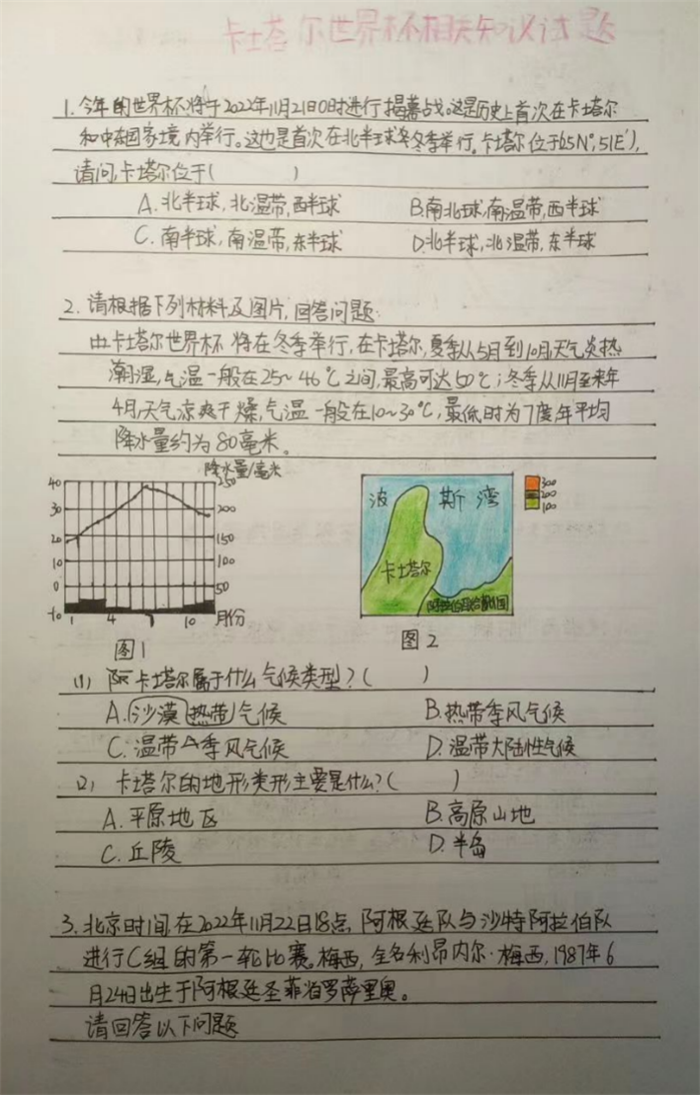 卡塔尔世界杯相关知识试题
1.今年的世界杯将于2022年11月21日0时进行揭幕战。这是历史上首次在卡塔尔
和中东国家境内举行。这也是首次在北半球冬季举行。卡塔尔位于(25N°,51E°),
请问,卡塔尔位于( )
A.北半球,北温带,西半球 B.南北球,南温带,西半球
C.南半球,南温带,东半球 D.北半球,北温带,东半球
2.请根据下列材料及图片,回答问题
卡塔尔世界杯将在冬季举行,在卡塔尔,夏季从5月到10月,天气炎热
潮湿,气温一般在25~46℃之间,最高可达50℃;冬季从11月至来年
4月,天气凉爽干燥,气温一般在10~30℃,最低时为7度,年平均
降水量约为80毫米。
降水量/毫米
40 250
30 200
20 150
10 100
0 50
-10 1 4 7 10 月份
图1
波斯湾
卡塔尔
300
200
100
图2
(1) 卡塔尔属于什么气候类型?( )
A.沙漠热带气候 B.热带季风气候
C.温带季风气候 D.温带大陆性气候
(2) 卡塔尔的地形类形主要是什么?( )
A.平原地区 B.高原山地
C.丘陵 D.半岛
3.北京时间在2022年11月22日18点,阿根廷队与沙特阿拉伯队
进行C组的第一轮比赛。梅西,全名利昂内尔·梅西,1987年6
月24日出生于阿根廷圣菲省罗萨里奥。
请回答以下问题